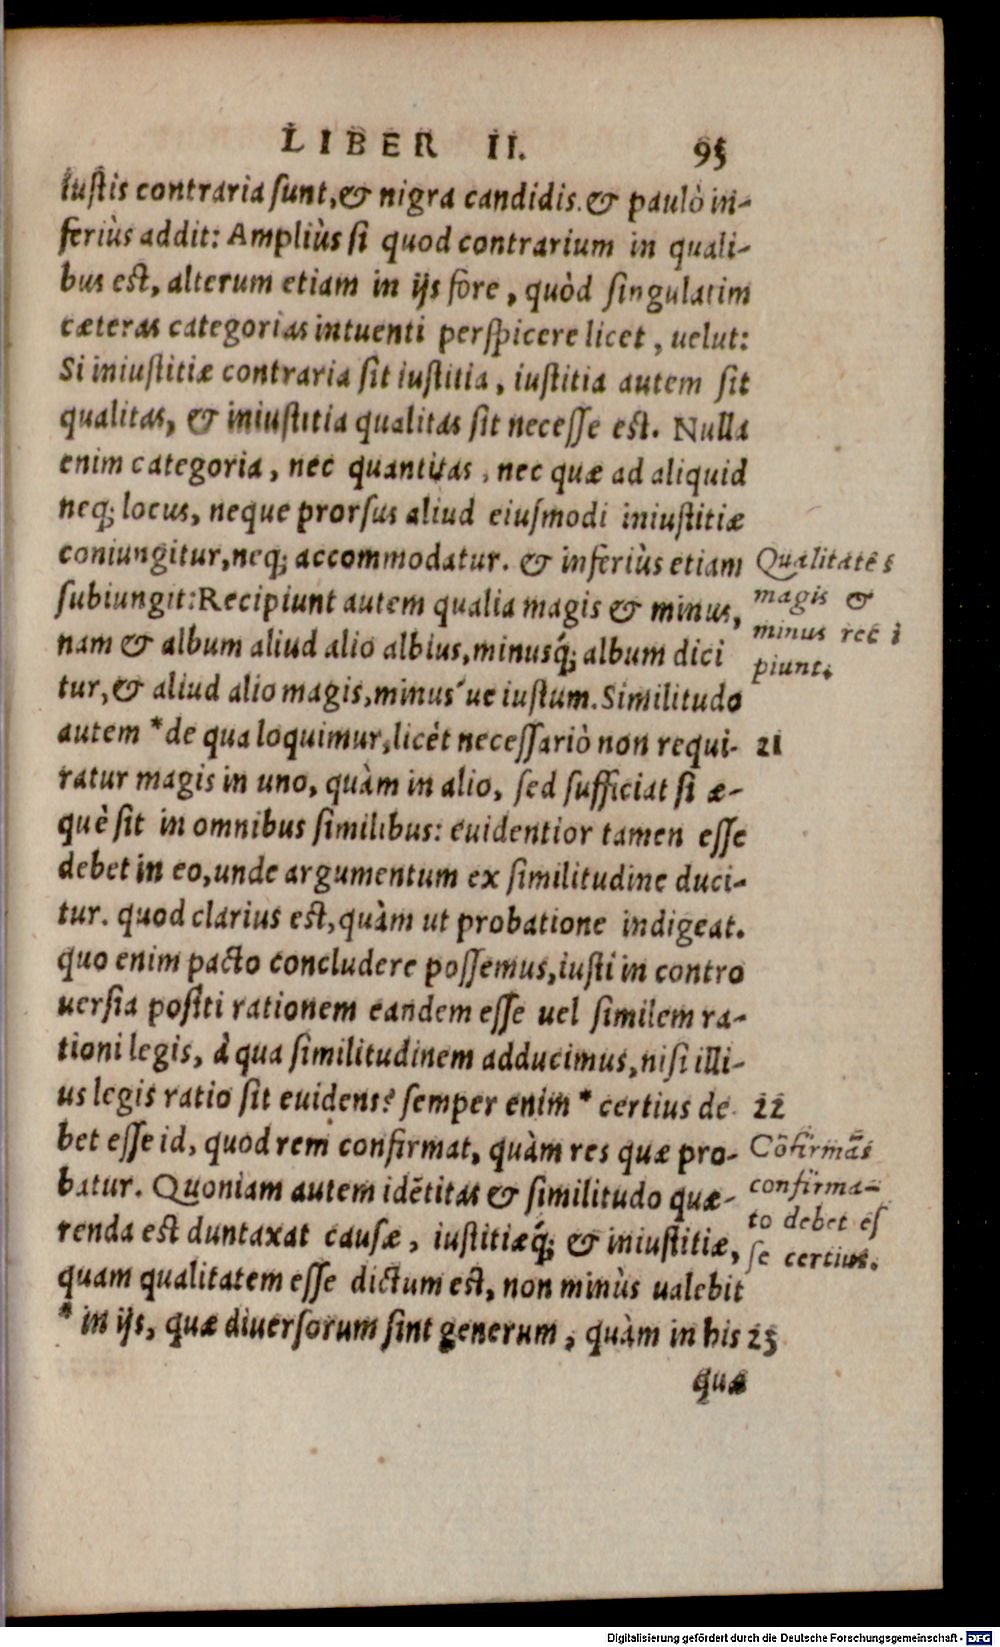 LIBER II. 95
iustis contraria sunt, & nigra candidis. & paulò in-
feriùs addit: Ampliùs si quod contrarium in quali-
bus est, alterum etiam in ijs fore, quòd singulatim
cæteras categorias intuenti perspicere licet, uelut:
Si iniustitiæ contraria sit iustitia, iustitia autem sit
qualitas, & iniustitia qualitas sit necesse est. Nulla
enim categoria, nec quantitas, nec quæ ad aliquid
neq; locus, neque prorsus aliud eiusmodi iniustitiæ
coniungitur, neq; accommodatur. & inferiùs etiam
subiungit: Recipiunt autem qualia magis & minus,
nam & album aliud alio albius, minusq́; album dici
tur, & aliud alio magis, minus´ue iustum. Similitudo
autem * de qua loquimur, licèt necessariò non requi-
ratur magis in uno, quàm in alio, sed sufficiat si æ-
què sit in omnibus similibus: euidentior tamen esse
debet in eo, unde argumentum ex similitudine duci-
tur. quod clarius est, quàm ut probatione indigeat.
quo enim pacto concludere possemus, iusti in contro
uersia positi rationem eandem esse uel similem ra-
tioni legis, à qua similitudinem adducimus, nisi illi-
us legis ratio sit euidens? semper enim * certius de
bet esse id, quod rem confirmat, quàm res quæ pro-
batur. Quoniam autem idẽtitas & similitudo quæ-
renda est duntaxat causæ, iustitiæq́; & iniustitiæ,
quam qualitatem esse dictum est, non minùs ualebit
* in ijs, quæ diuersorum sint generum, quàm in his
quæ
Qualitates
magis &
minus reci
piunt.
21
22
Cõfirmãs
confirma-
to debet es
se certius.
23
Digitalisierung gefördert durch die Deutsche Forschungsgemeinschaft - DFG